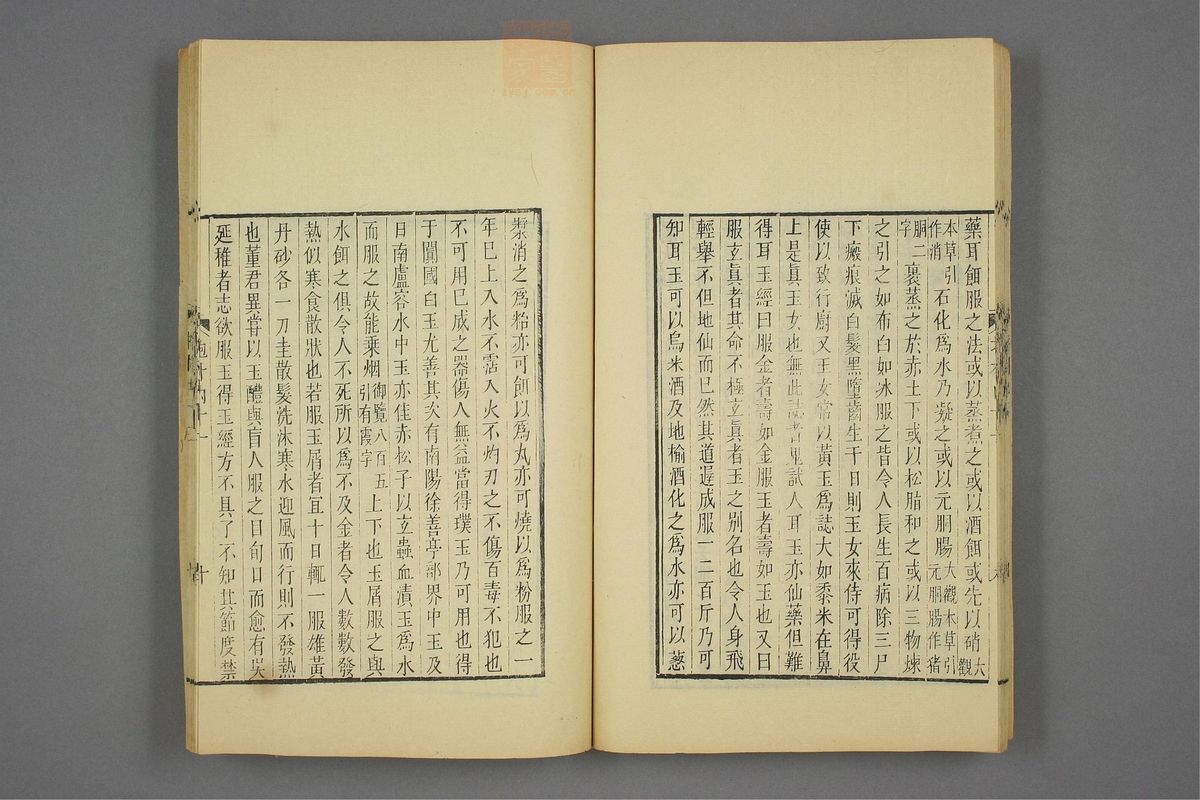 藥耳餌服之法或以蒸煮之或以酒餌或先以硝大觀
本草引作消石化爲水乃凝之或以元胴腸大觀本草引元胴腸作猪
胴二字裹蒸之於赤土下或以松脂和之或以三物煉
之引之如布白如冰服之皆令人長生百病除三尸
下瘢痕滅白髮黑墮齒生千日則玉女來侍可得役
使以致行廚又玉女常以黃玉爲誌大如黍米在鼻
上是眞玉女也無此誌者鬼試人耳玉亦仙藥但難
得耳玉經曰服金者壽如金服玉者壽如玉也又曰
服玄眞者其命不極玄眞者玉之別名也令人身飛
輕舉不但地仙而已然其道遲成服一二百斤乃可
知耳玉可以烏米酒及地榆酒化之爲水亦可以蔥
漿消之爲粭亦可餌以爲丸亦可燒以爲粉服之一
年已上入水不霑入火不灼刃之不傷百毒不犯也
不可用已成之器傷人無益當得璞玉乃可用也得
于闐國白玉尤善其次有南陽徐善亭部界中玉及
日南盧容水中玉亦佳赤松子以玄蟲血漬玉爲水
而服之故能乘烟御覽八百五引有霞字上下也玉屑服之與
水餌之俱令人不死所以爲不及金者令人數數發
熱似寒食散狀也若服玉屑者宜十日輒一服雄黃
丹砂各一刀圭散髮洗沐寒水迎風而行則不發熱
也董君異嘗以玉醴與盲人服之目旬日而愈有吳
延稚者志欲服玉得玉經方不具了不知其節度禁